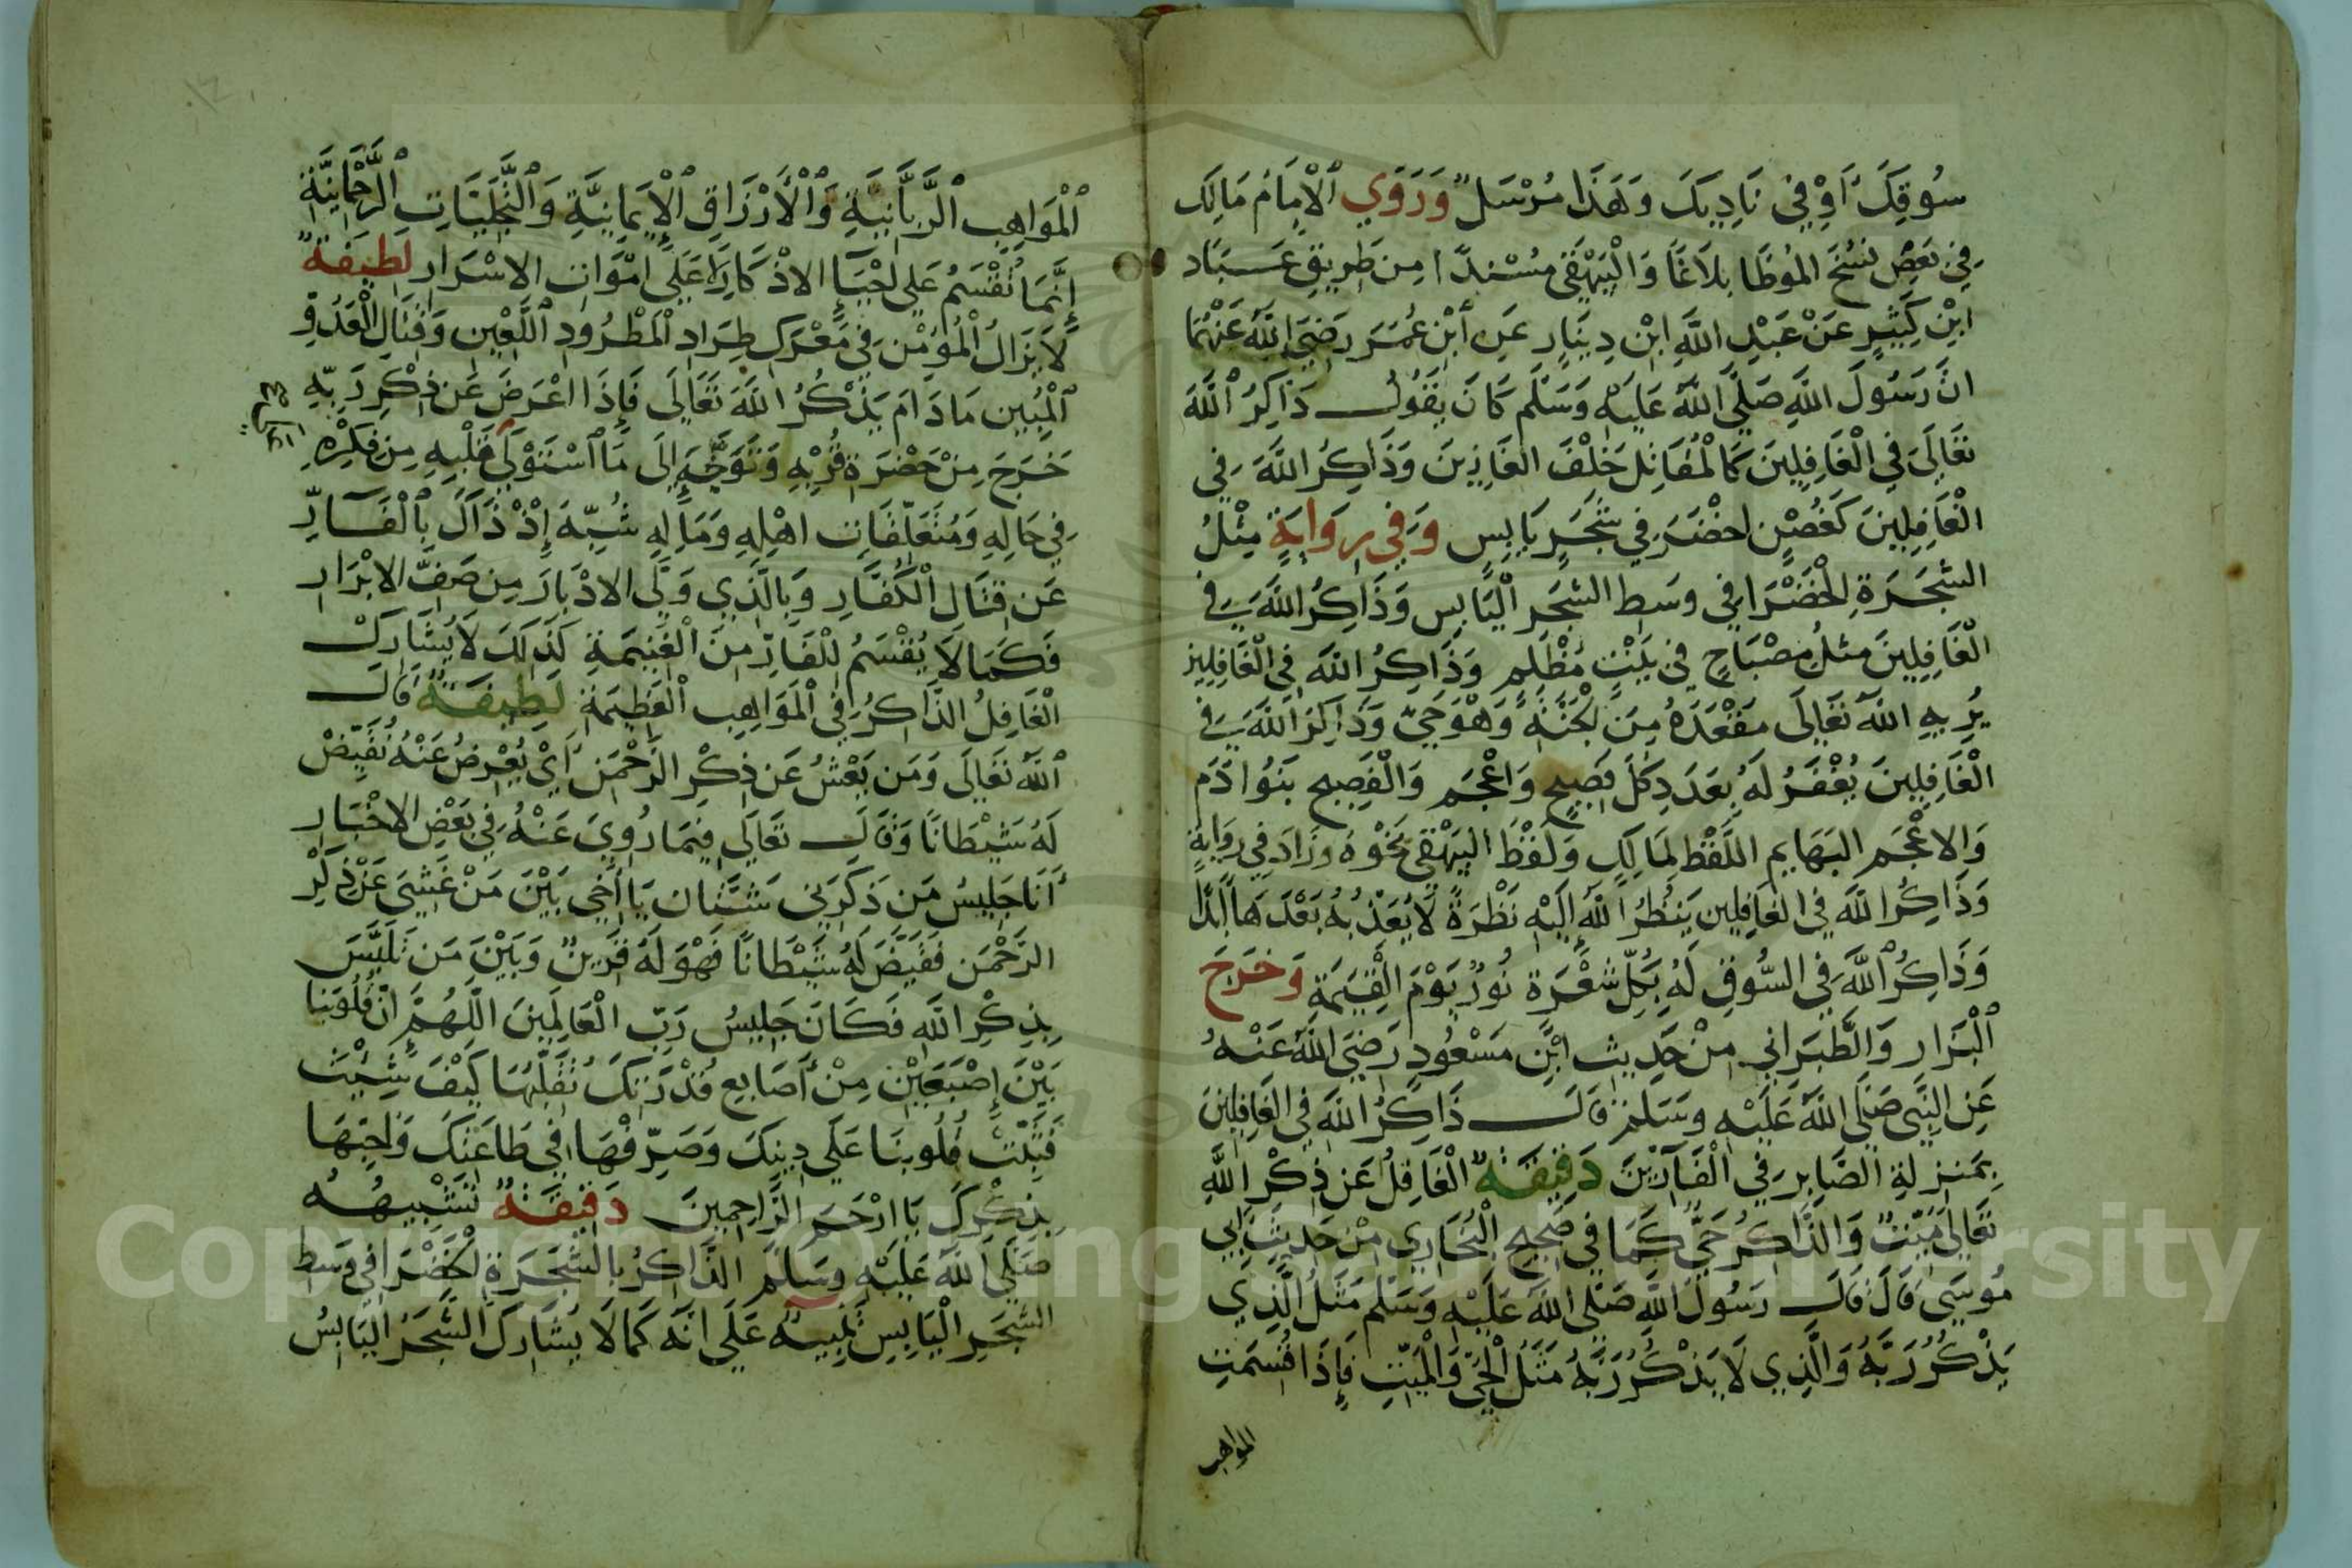 سُوقِكَ أَوْ فِي نَادِيكَ وَهَذَا مُرْسَلٌ وَرَوَي الْإِمَامُ مَالِك
فِي بَعْضِ نُسَخِ المُوطَّا بِلَاغًا وَالْبَيْهَقِي مُسْنَدًا مِن طَرِيقِ عَبَّاد
ابْنِ كَثِيرٍ عَنْ عَبْدِ اللَّهِ ابْنِ دِينَارٍ عَنِ ابْنِ عُمَرَ رَضِيَ اللَّهُ عَنْهُمَا
انَّ رَسُولَ اللَّهِ صَلَّي اللَّهُ عَلَيْهِ وَسَلَّم كَانَ يَقُولُ ذَاكِرُ اللَّهَ
تَعَالَي فِي الْغَافِلِينَ كَالْمُقَاتِل خَلْفَ الغَازِينَ وَذَاكِرُ اللَّهَ فِي
الْغَافِلِينَ كَغُصْنٍ اخْضَرَ فِي شَجَرٍ يَابِسٍ وَفِي رِوَايَةٍ مِثْلُ
الشَّجَرَةِ الْخَضْرَا فِي وَسَطِ الشَّجَرِ الْيَابِسِ وَذَاكِرُ اللَّهَ فِي
الْغَافِلِينَ مثلُ مِصْبَاحٍ فِي بَيْتٍ مُظْلِمٍ وَذَاكِرُ اللَّهَ فِي الْغَافِلِينَ
يُرِيهِ اللَّهُ تَعَالَي مَقْعَدَهُ مِنَ الْجَنَّةِ وَهْوَ حَيٌّ وَذَاكِرُ اللَّهَ فِي
الْغَافِلِينَ يُغْفَرُ لَهُ بِعَدَدِ كُلِّ فَصِيحٍ وَاعْجَمٍ وَالْفَصِيحِ بَنُوا ادَم
وَالاعْجَمِ البَهَايِم اللَّفْظ لِمَالِكٍ وَلَفْظُ البَيْهَقِي نَحْوُهُ وَزَادَ فِي رِوَايَةٍ
وَذَاكِرُ اللَّهَ فِي الغَافِلِين يَنْظُرُ اللَّهُ إِلَيْهِ نَظْرَةً لَا يُعَذِّبُهُ بَعْدَهَا أَبَدًا
وَذَاكِرُ اللَّهَ فِي السُّوقِ لَهُ بِكُلِّ شَعْرَةٍ نُورٌ يَوْمَ الْقِيَمَةِ وَخَرَجَ
الْبَزَار وَالطَّبَرَانِي مِنْ حَدِيثِ ابْنِ مَسْعُودٍ رَضِيَ اللَّهُ عَنْهُ
عَنِ النَّبِي صَلَّي اللَّهُ عَلَيْهِ وَسَلَّمَ قَالَ ذَاكِرُ اللَّهَ فِي الغَافِلِينَ
بِمَنْزِلَةِ الصَّابِرِ فِي الْفَارِّيْنَ دَقِيقَةٌ الْغَافِلُ عَن ذِكْرِ اللَّهِ
تَعَالَي مَيِّتٌ وَالذَّاكِرُ حَيٌّ كَمَا فِي صَحِيحِ الْبُخَارِي مِنْ حَدِيثِ ابِي
مُوسَي قَالَ قَالَ رَسُولُ اللَّهِ صَلَّي اللَّهُ عَلَيْهِ وَسَلَّم مَثَلُ الَّذِي
يَذْكُرُ رَبَّهُ وَالَّذِي لَا يَذْكُرُ رَبَّهُ مَثَلُ الْحَيِّ وَالْمَيِّتِ فَإِذَا قُسِمَتِ
المواهب
الْمَوَاهِبِ الرَّبَّانِيَّةِ وَالْأَرْزَاقِ الْإِيمَانِيَّةِ وَالتَّجَلِّيَاتِ الرَّحْمَانِيَّةِ
إِنَّمَا تُقْسَمُ عَلَي احْيَاءِ الاذْكَارِ لَا عَلَي امْوَاتِ الاسْرَارِ لَطِيفَةٌ
لَا يَزَالُ الْمُؤْمِن فِي مَعْرَكِ طِرَادِ الْمَطْرُودِ اللَّعِينِ وَقِتَالِ الْعَدُوِّ
الْمُبِينِ مَا دَامَ يَذْكُرُ اللَّهَ تَعَالَي فَإِذَا اعْرَضَ عَن ذِكْرِ رَبِّهِ
خَرَجَ مِنْ حَضْرَةِ قُرْبِهِ وَتَوَجَّهَ إِلَى مَا اسْتَوْلَي قَلْبِهِ مِن فِكْرِهِ
فِي حَالِهِ وَمُتَعَلِّقَاتِ اهْلِهِ وَمَالِهِ شُبِّهَ إِذْ ذَاكَ بِالْفَارِّ
عَن قِتَالِ الْكُفَّارِ وَبِالَّذِي وَلَّي الادْبَارَ مِن صَفِّ الابْرَارِ
فَكَمَا لَا يُقْسَمُ لِلْفَارِّ مِنَ الْغَنِيمَةِ كَذَلِكَ لَا يُشَارِكُ
الْغَافِلُ الذَّاكِرُ فِي الْمَوَاهِبِ الْعَظِيمَةِ لَطِيفَةٌ قَالَ
اللَّهُ تَعَالَي وَمَن يَعْشُ عَن ذِكْرِ الرَّحْمَنِ أَيْ يُعْرِضُ عَنْهُ نُقَيِّضْ
لَهُ شَيْطَانًا وَقَالَ تَعَالَي فِيمَا رُوِيَ عَنْهُ فِي بَعْضِ الاخْبَارِ
أَنَا جَلِيسُ مَن ذَكَرَنِي شَتَّان يَا أَخِي بَيْنَ مَنْ غَشِيَ عَنْ ذِكْرِ
الرَّحْمَنِ فَقَيَّضَ لَهُ شَيْطَانًا فَهْوَ لَهُ قَرِينٌ وَبَيْنَ مَن تَلَبَّسَ
بِذِكْرِ اللَّهِ فَكَانَ جَلِيسُ رَبِّ الْعَالَمِينَ اللَّهُمَّ انَّ قُلُوبَنَا
بَيْنَ إِصْبَعَيْنِ مِنْ أَصَابِعِ قُدْرَتِكَ تُقَلِّبُهَا كَيْفَ شِئْتَ
فَثَبِّتْ قُلُوبَنَا عَلَي دِينِكَ وَصَرِّفْهَا فِي طَاعَتِكَ وَاحْيِهَا
بِذِكْرِكَ يَا ارْحَمَ الرَّاحِمِينَ دَقِيقَةٌ تَشْبِيهُهُ
صَلَّي اللَّهُ عَلَيْهِ وَسَلَّمَ الذَّاكِرُ بِالشَّجَرَةِ الْخَضْرَا فِي وَسَطِ
الشَّجَرِ الْيَابِسِ تَنْبِيهٌ عَلَي انَّهُ كَمَا لَا يُشَارِكُ الشَّجَرُ اليَابِسُ
Copyright © King Saud University